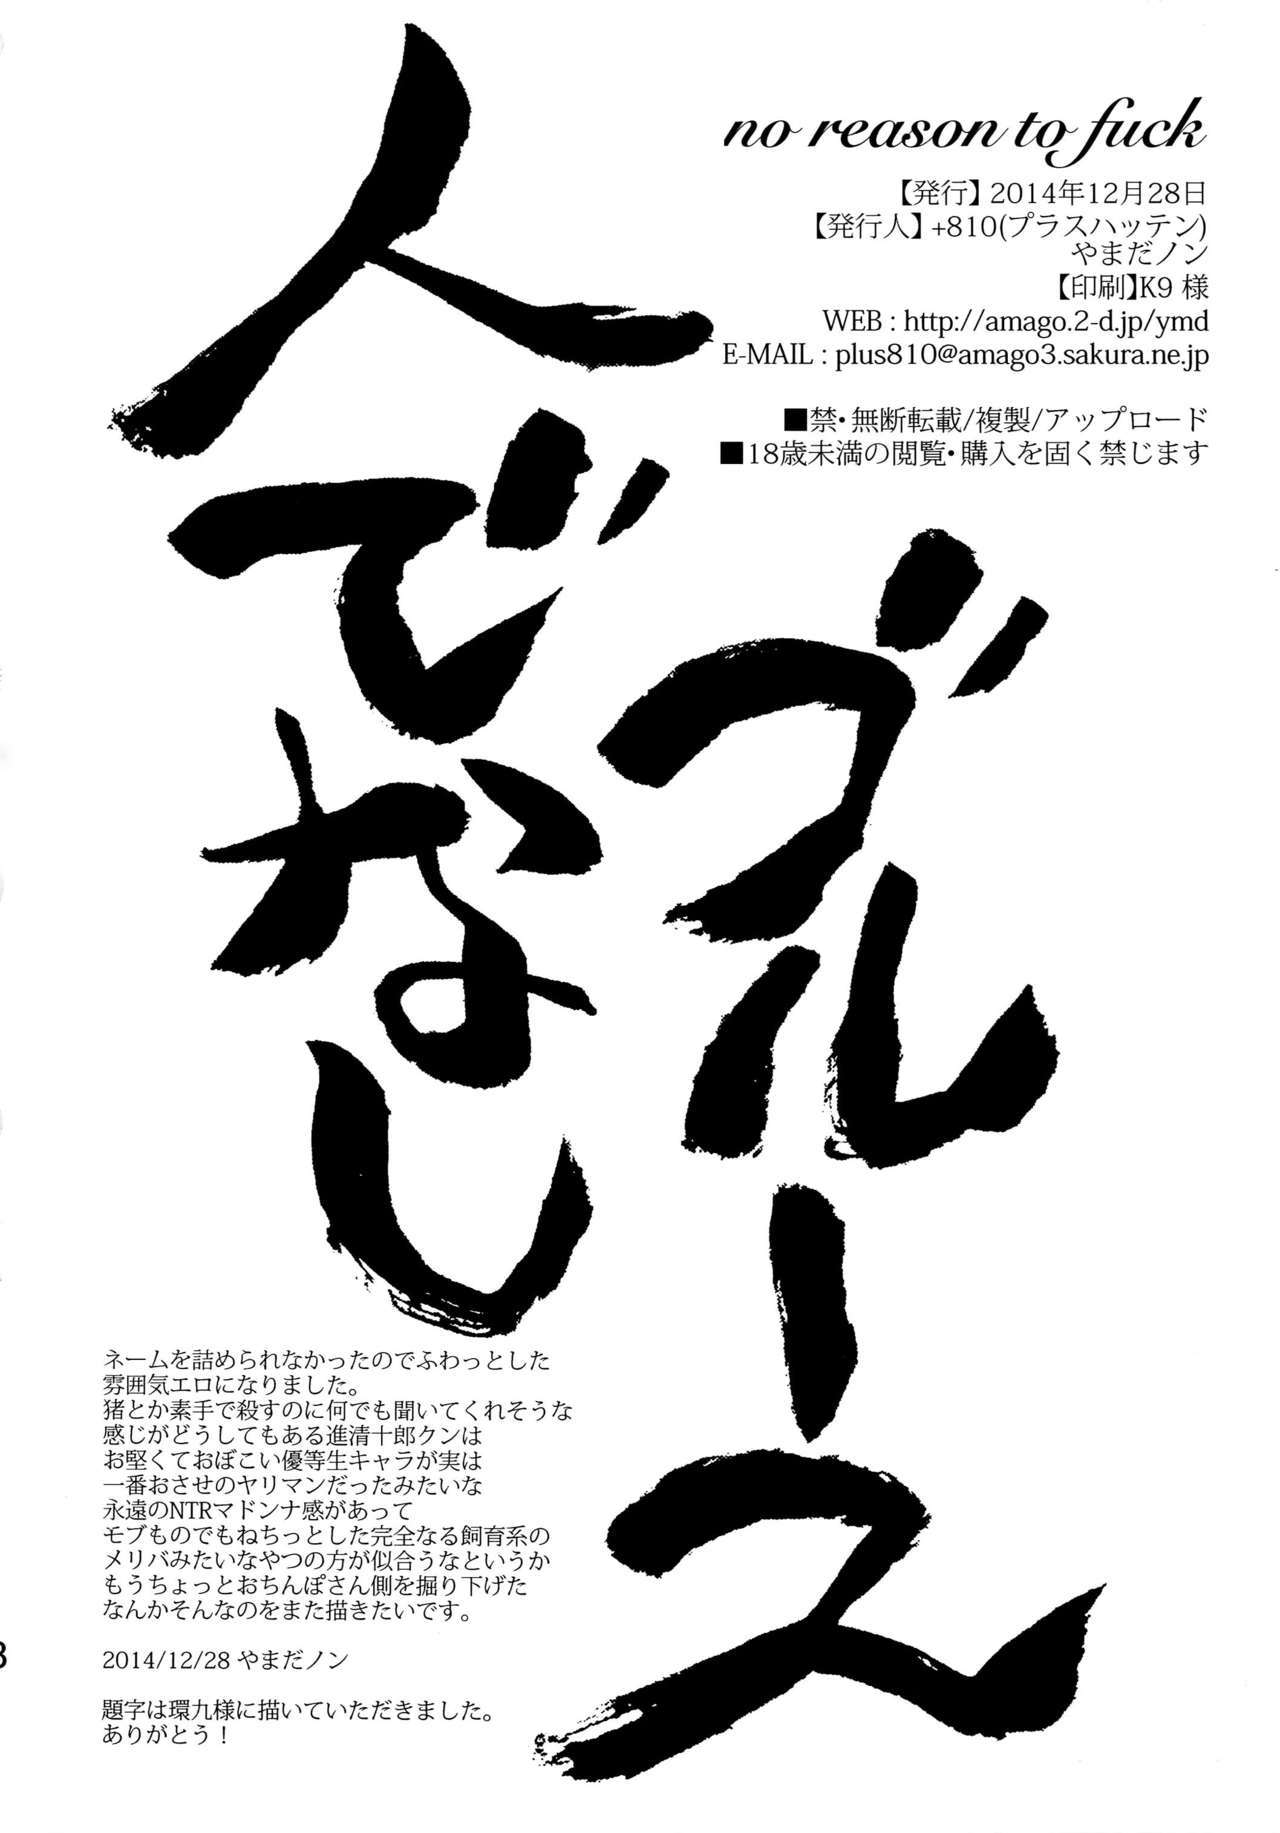 no reason to fuck
【発行】2014年12月28日
【発行人】+810(プラスハッテン)
やまだノン
【印刷】K9 様
WEB : http://amago.2-d.jp/ymd
E-MAIL : plus810@amago3.sakura.ne.jp
■禁・無断転載/複製/アップロード
■18歳未満の閲覧・購入を固く禁じます
人でなし
ブルース
ネームを詰められなかったのでふわっとした
雰囲気エロになりました。
猪とか素手で殺すのに何でも聞いてくれそうな
感じがどうしてもある進清十郎クンは
お堅くておぼこい優等生キャラが実は
一番おさせのヤリマンだったみたいな
永遠のNTRマドンナ感があって
モブものでもねちっとした完全なる飼育系の
メリバみたいなやつの方が似合うなというか
もうちょっとおちんぽさん側を掘り下げた
なんかそんなのをまた描きたいです。
2014/12/28 やまだノン
題字は環九様に描いていただきました。
ありがとう！